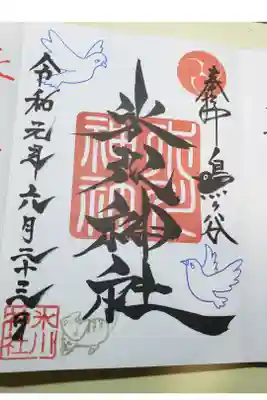 奉拝 鳩ヶ谷
氷川神社
氷川神社
令和元年六月二十三日
氷川神社